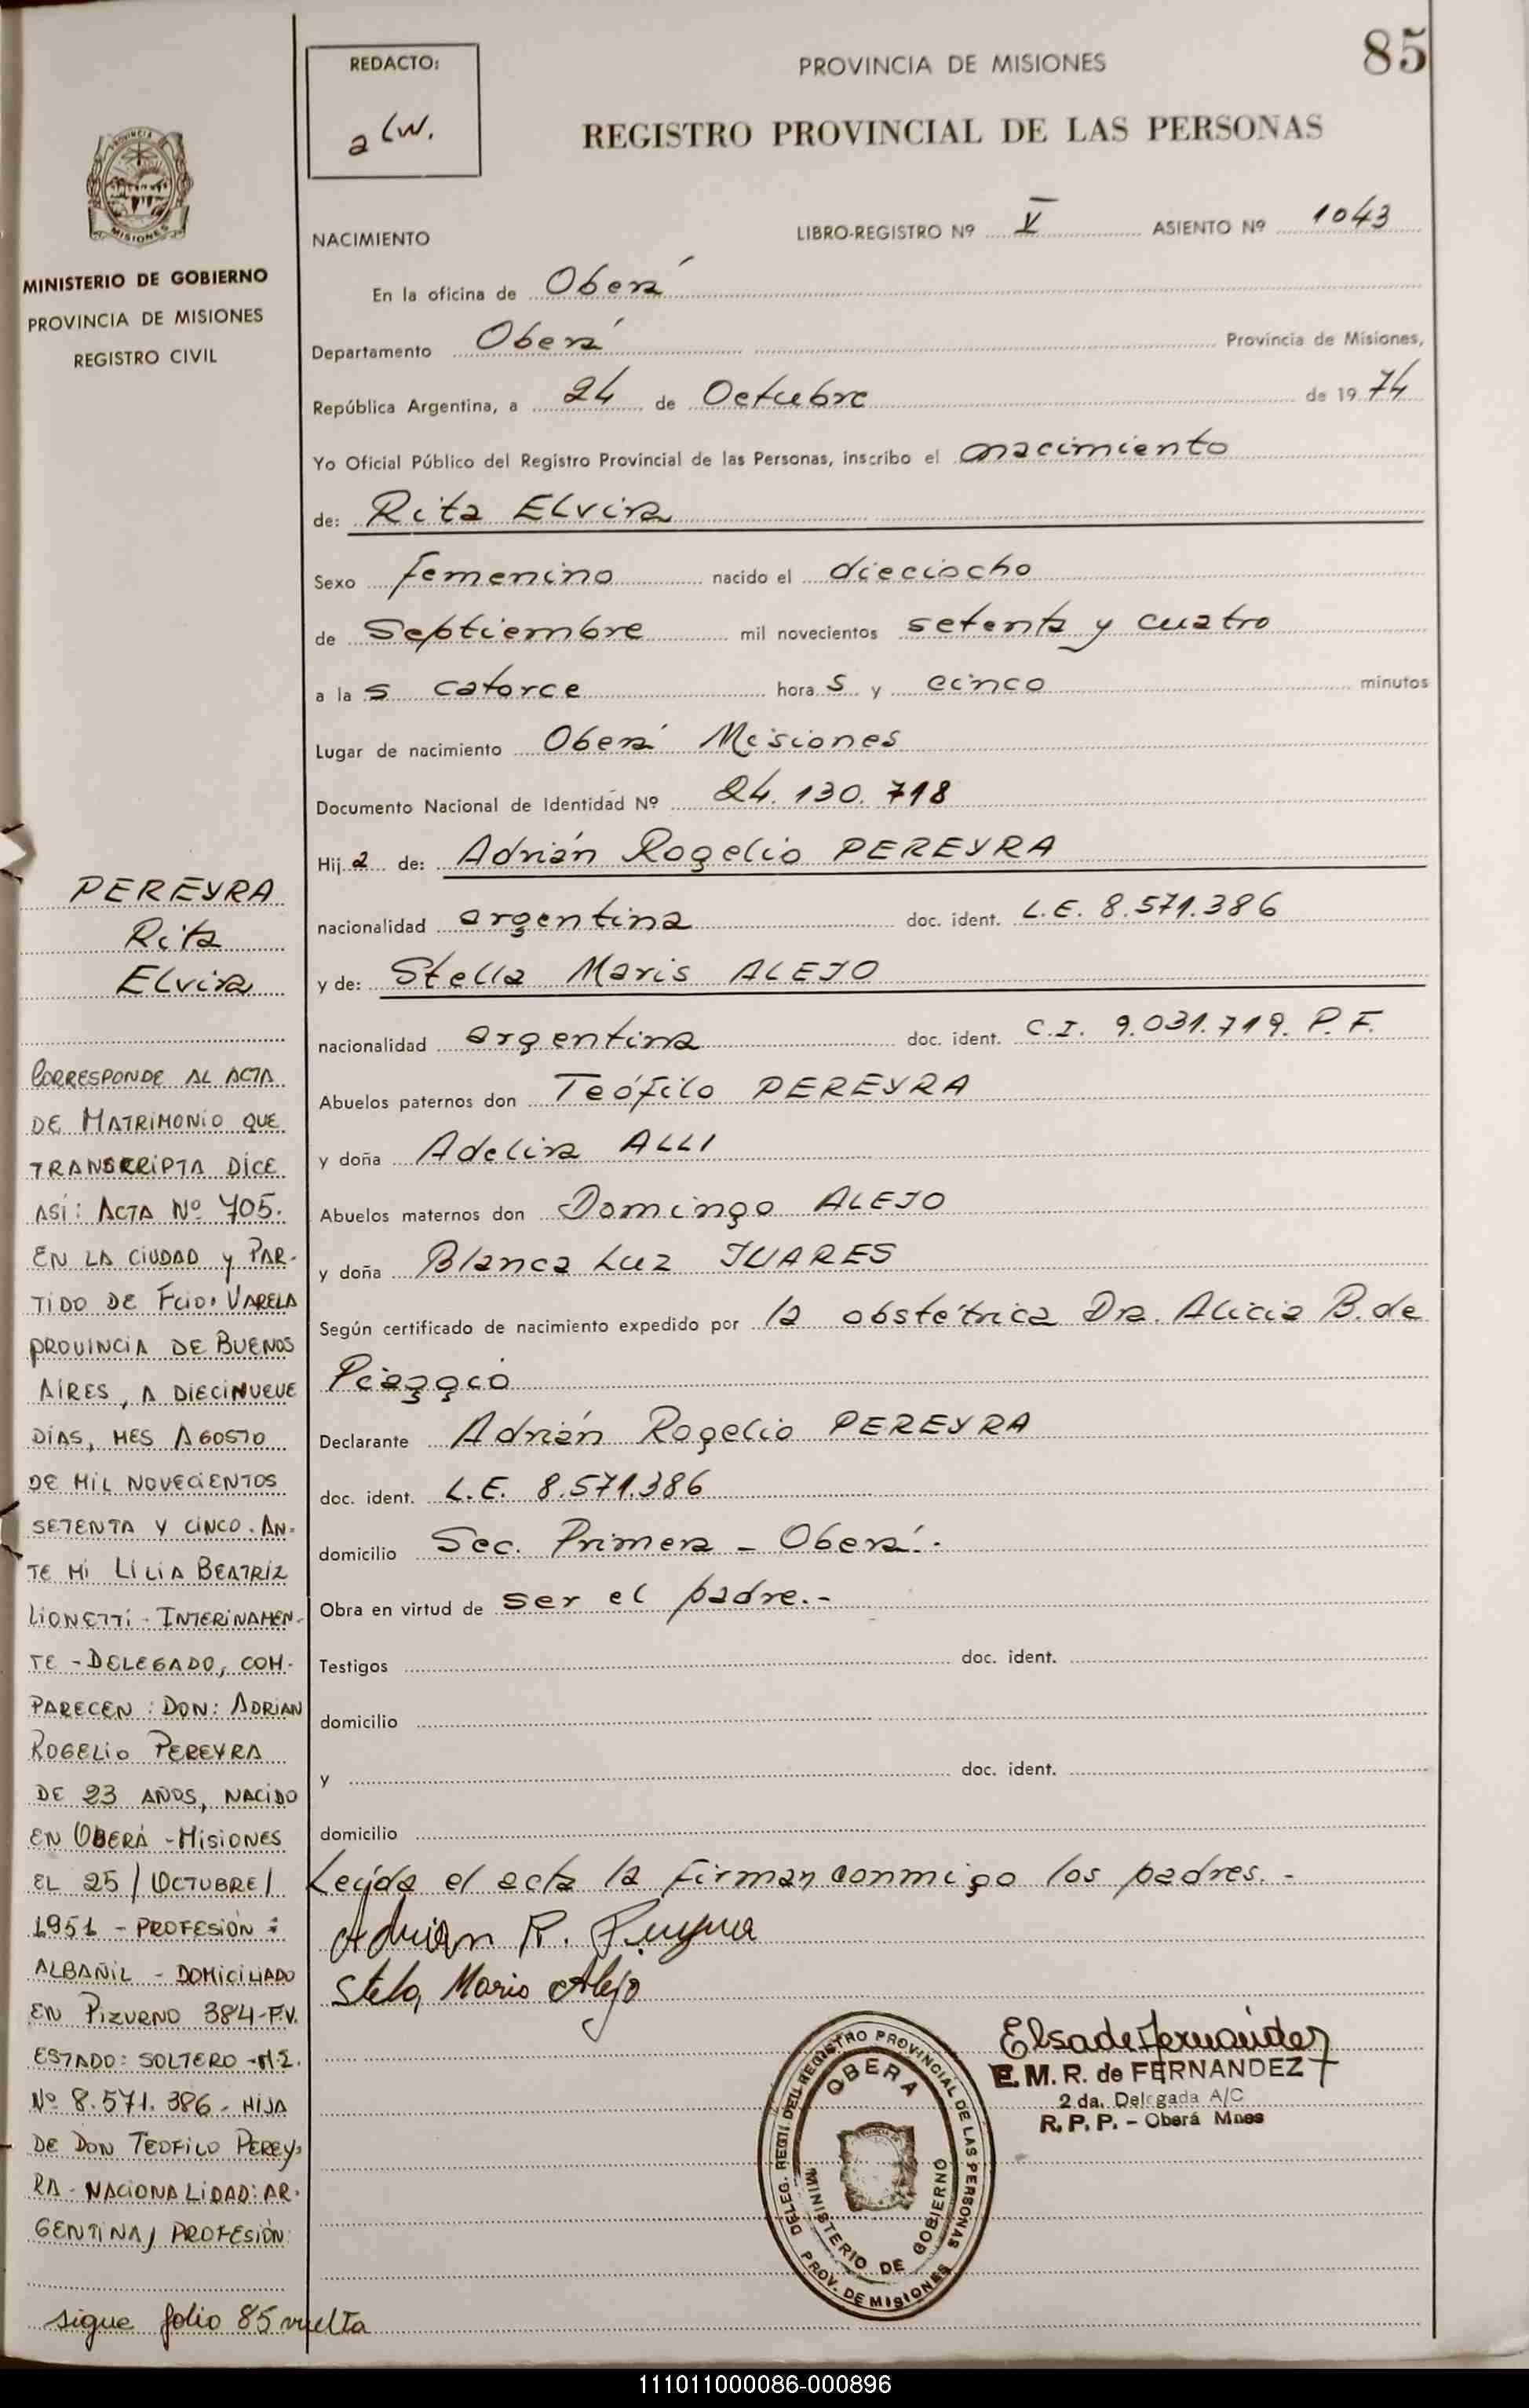 85
REDACTO:
PROVINCIA DE MISIONES
REGISTRO PROVINCIAL DE LAS PERSONAS
NACIMIENTO
LIBRO-REGISTRO Nº V ASIENTO Nº 1043
MINISTERIO DE GOBIERNO
PROVINCIA DE MISIONES
REGISTRO CIVIL
En la oficina de Oberá
Departamento Oberá Provincia de Misiones,
República Argentina, a 24 de Octubre de 1974
Yo Oficial Público del Registro Provincial de las Personas, inscribo el nacimiento
de: Rita Elvira
Sexo femenino nacido el dieciocho
de Septiembre mil novecientos setenta y cuatro
a las catorce horas y cinco minutos
Lugar de nacimiento Oberá Misiones
Documento Nacional de Identidad Nº 24.130.718
Hija de: Adrián Rogelio PEREYRA
nacionalidad argentina doc. ident. L.E. 8.571.386
y de: Stella Maris ALEJO
nacionalidad argentina doc. ident. C.I. 9.031.719. P.F.
Abuelos paternos don Teófilo PEREYRA
y doña Adelina ALLI
Abuelos maternos don Domingo ALEJO
y doña Blanca Luz JUARES
Según certificado de nacimiento expedido por la obstétrica Dra. Alicia B. de
Piaggio
Declarante Adrián Rogelio PEREYRA
doc. ident. L.E. 8.571.386
domicilio Sec. Primera - Oberá.-
Obra en virtud de ser el padre.-
Testigos doc. ident.
domicilio
y doc. ident.
domicilio
Leída el acta la firman conmigo los padres.-
Adrian R. Pereyra
Stela Maris Alejo
PEREYRA
Rita
Elvira
CORRESPONDE AL ACTA
DE MATRIMONIO QUE
TRANSCRIPTA DICE
ASÍ: ACTA Nº 705.
EN LA CIUDAD y PAR-
TIDO DE Fcio. VARELA
PROVINCIA DE BUENOS
AIRES, A DIECINUEVE
DÍAS, MES AGOSTO
DE MIL NOVECIENTOS
SETENTA Y CINCO. AN-
TE MI LILIA BEATRIZ
LIONETTI - INTERINAMEN-
TE - DELEGADO, COM-
PARECEN: DON: ADRIAN
ROGELIO PEREYRA
DE 23 AÑOS, NACIDO
EN OBERÁ - MISIONES
EL 25/OCTUBRE/
1951 - PROFESIÓN:
ALBAÑIL - DOMICILIADO
EN PIZURNO 384-F.V.
ESTADO: SOLTERO - M.I.
Nº 8.571.386 - HIJA
DE DON TEOFILO PEREY-
RA - NACIONALIDAD: AR-
GENTINA, PROFESIÓN:
sigue folio 85 vuelta
Elsa de Fernández
E. M. R. de FERNANDEZ
2 da. Delegada A/C
R. P. P. - Oberá Mnes
OBERA
MINISTERIO DE GOBIERNO
PROV. DE MISIONES
111011000086-000896